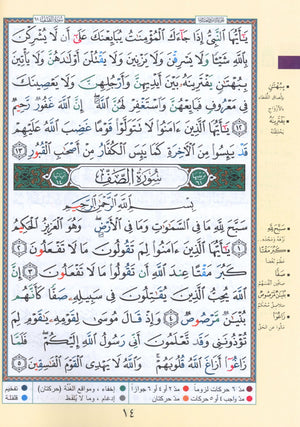 يَٰٓأَيُّهَا ٱلنَّبِىُّ إِذَا جَآءَكَ ٱلْمُؤْمِنَٰتُ يُبَايِعْنَكَ عَلَىٰٓ أَن لَّا يُشْرِكْنَ
بِٱللَّهِ شَيْـًٔا وَلَا يَسْرِقْنَ وَلَا يَزْنِينَ وَلَا يَقْتُلْنَ أَوْلَٰدَهُنَّ وَلَا يَأْتِينَ
بِبُهْتَٰنٍ يَفْتَرِينَهُۥ بَيْنَ أَيْدِيهِنَّ وَأَرْجُلِهِنَّ وَلَا يَعْصِينَكَ
فِى مَعْرُوفٍ فَبَايِعْهُنَّ وَٱسْتَغْفِرْ لَهُنَّ ٱللَّهَ إِنَّ ٱللَّهَ غَفُورٌ رَّحِيمٌ
١٢ يَٰٓأَيُّهَا ٱلَّذِينَ ءَامَنُوا۟ لَا تَتَوَلَّوْا۟ قَوْمًا غَضِبَ ٱللَّهُ عَلَيْهِمْ
قَدْ يَئِسُوا۟ مِنَ ٱلْءَاخِرَةِ كَمَا يَئِسَ ٱلْكُفَّارُ مِنْ أَصْحَٰبِ ٱلْقُبُورِ ١٣
سُورَةُ ٱلصَّفِّ
بِسْمِ ٱللَّهِ ٱلرَّحْمَٰنِ ٱلرَّحِيمِ
سَبَّحَ لِلَّهِ مَا فِى ٱلسَّمَٰوَٰتِ وَمَا فِى ٱلْأَرْضِ وَهُوَ ٱلْعَزِيزُ ٱلْحَكِيمُ
١ يَٰٓأَيُّهَا ٱلَّذِينَ ءَامَنُوا۟ لِمَ تَقُولُونَ مَا لَا تَفْعَلُونَ ٢
كَبُرَ مَقْتًا عِندَ ٱللَّهِ أَن تَقُولُوا۟ مَا لَا تَفْعَلُونَ ٣ إِنَّ
ٱللَّهَ يُحِبُّ ٱلَّذِينَ يُقَٰتِلُونَ فِى سَبِيلِهِۦ صَفًّا كَأَنَّهُم
بُنْيَٰنٌ مَّرْصُوصٌ ٤ وَإِذْ قَالَ مُوسَىٰ لِقَوْمِهِۦ يَٰقَوْمِ لِمَ
تُؤْذُونَنِى وَقَد تَّعْلَمُونَ أَنِّى رَسُولُ ٱللَّهِ إِلَيْكُمْ فَلَمَّا
زَاغُوٓا۟ أَزَاغَ ٱللَّهُ قُلُوبَهُمْ وَٱللَّهُ لَا يَهْدِى ٱلْقَوْمَ ٱلْفَٰسِقِينَ ٥
بِبُهْتَٰنٍ
يَفْتَرِينَهُۥ
سَبَّحَ لِلَّهِ
كَبُرَ مَقْتًا
صَفًّا
بُنْيَٰنٌ مَّرْصُوصٌ
زَاغُوا۟
مدّ ٦ حركات لزوماً مدّ ٢ أو ٤ أو ٦ جوازاً إخفاء، ومواقع الغنّة (حركتان) تفخيم
مدّ واجب ٤ أو ٥ حركات مدّ حركتان إدغام، وما لا يُلفظ قلقلة
١٤